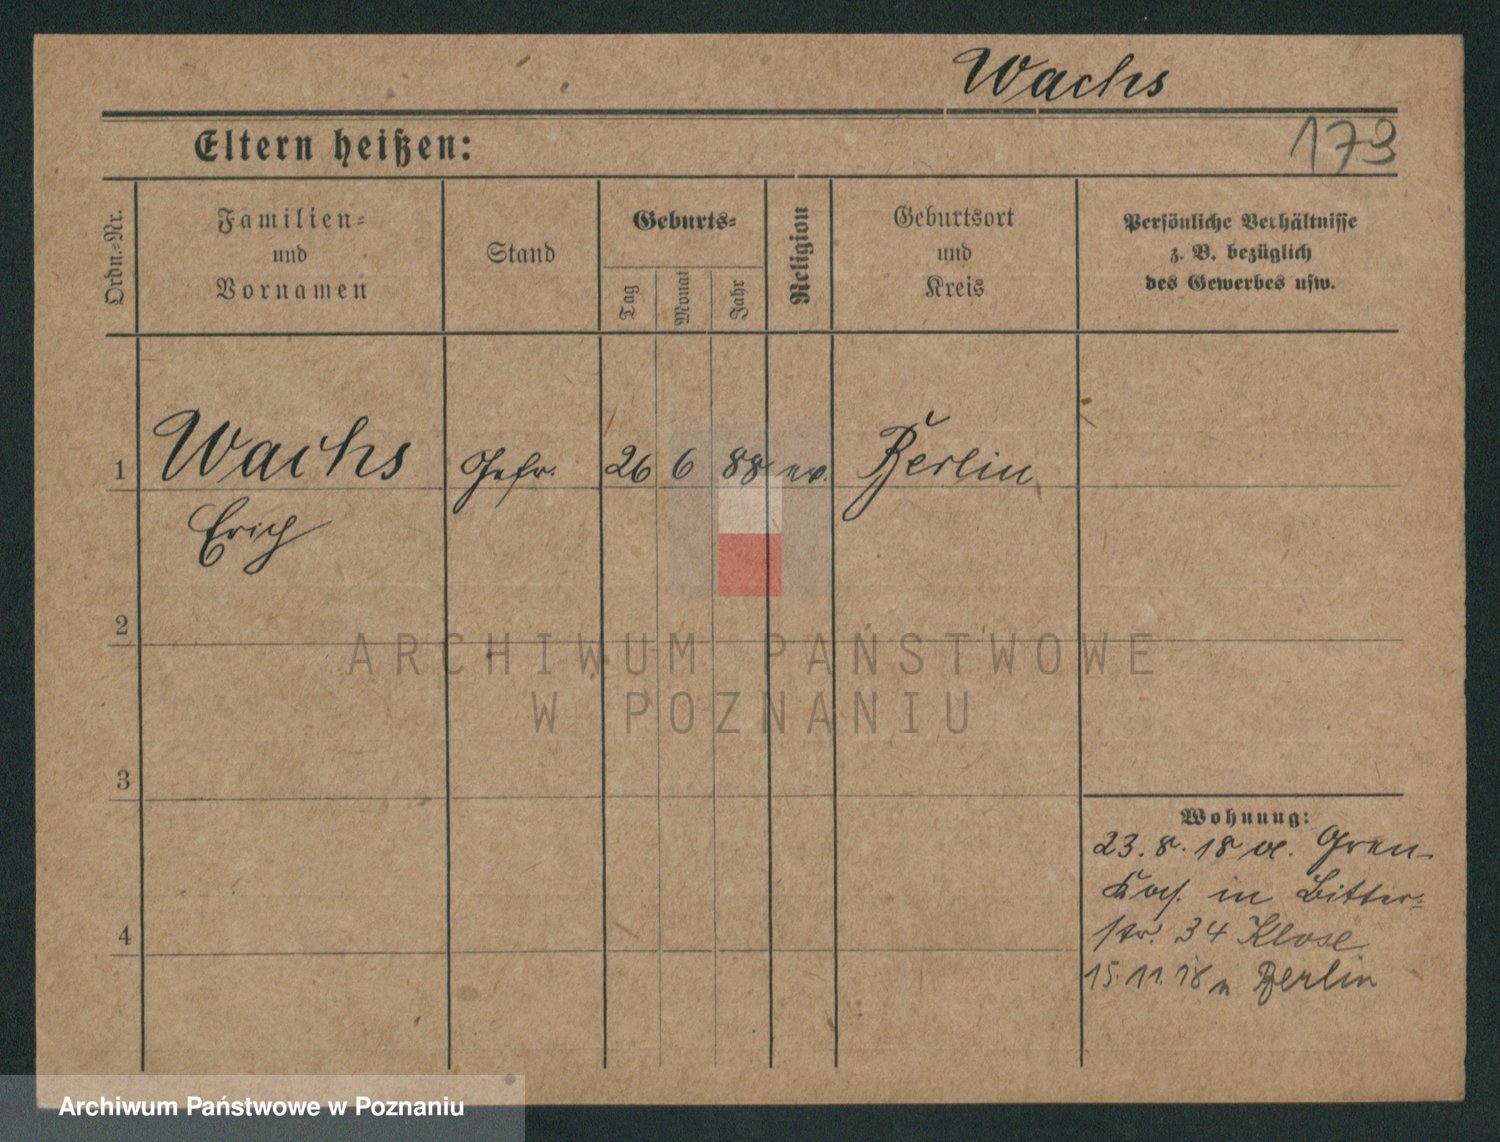 Wachs
Eltern heißen:
173
Ordn.-Nr.
Familien-
und
Vornamen
Stand
Geburts-
Tag
Monat
Jahr
Religion
Geburtsort
und
Kreis
Persönliche Verhältnisse
z. B. bezüglich
des Gewerbes usw.
1
Wachs
Gefr.
26
6
88
ev.
Berlin
Erich
2
ARCHIWUM PAŃSTWOWE
W POZNANIU
3
Wohnung:
23.8.18 Gren-
in Bitter-
str. 34 Klose
4
15.11.18 n Berlin
Archiwum Państwowe w Poznaniu